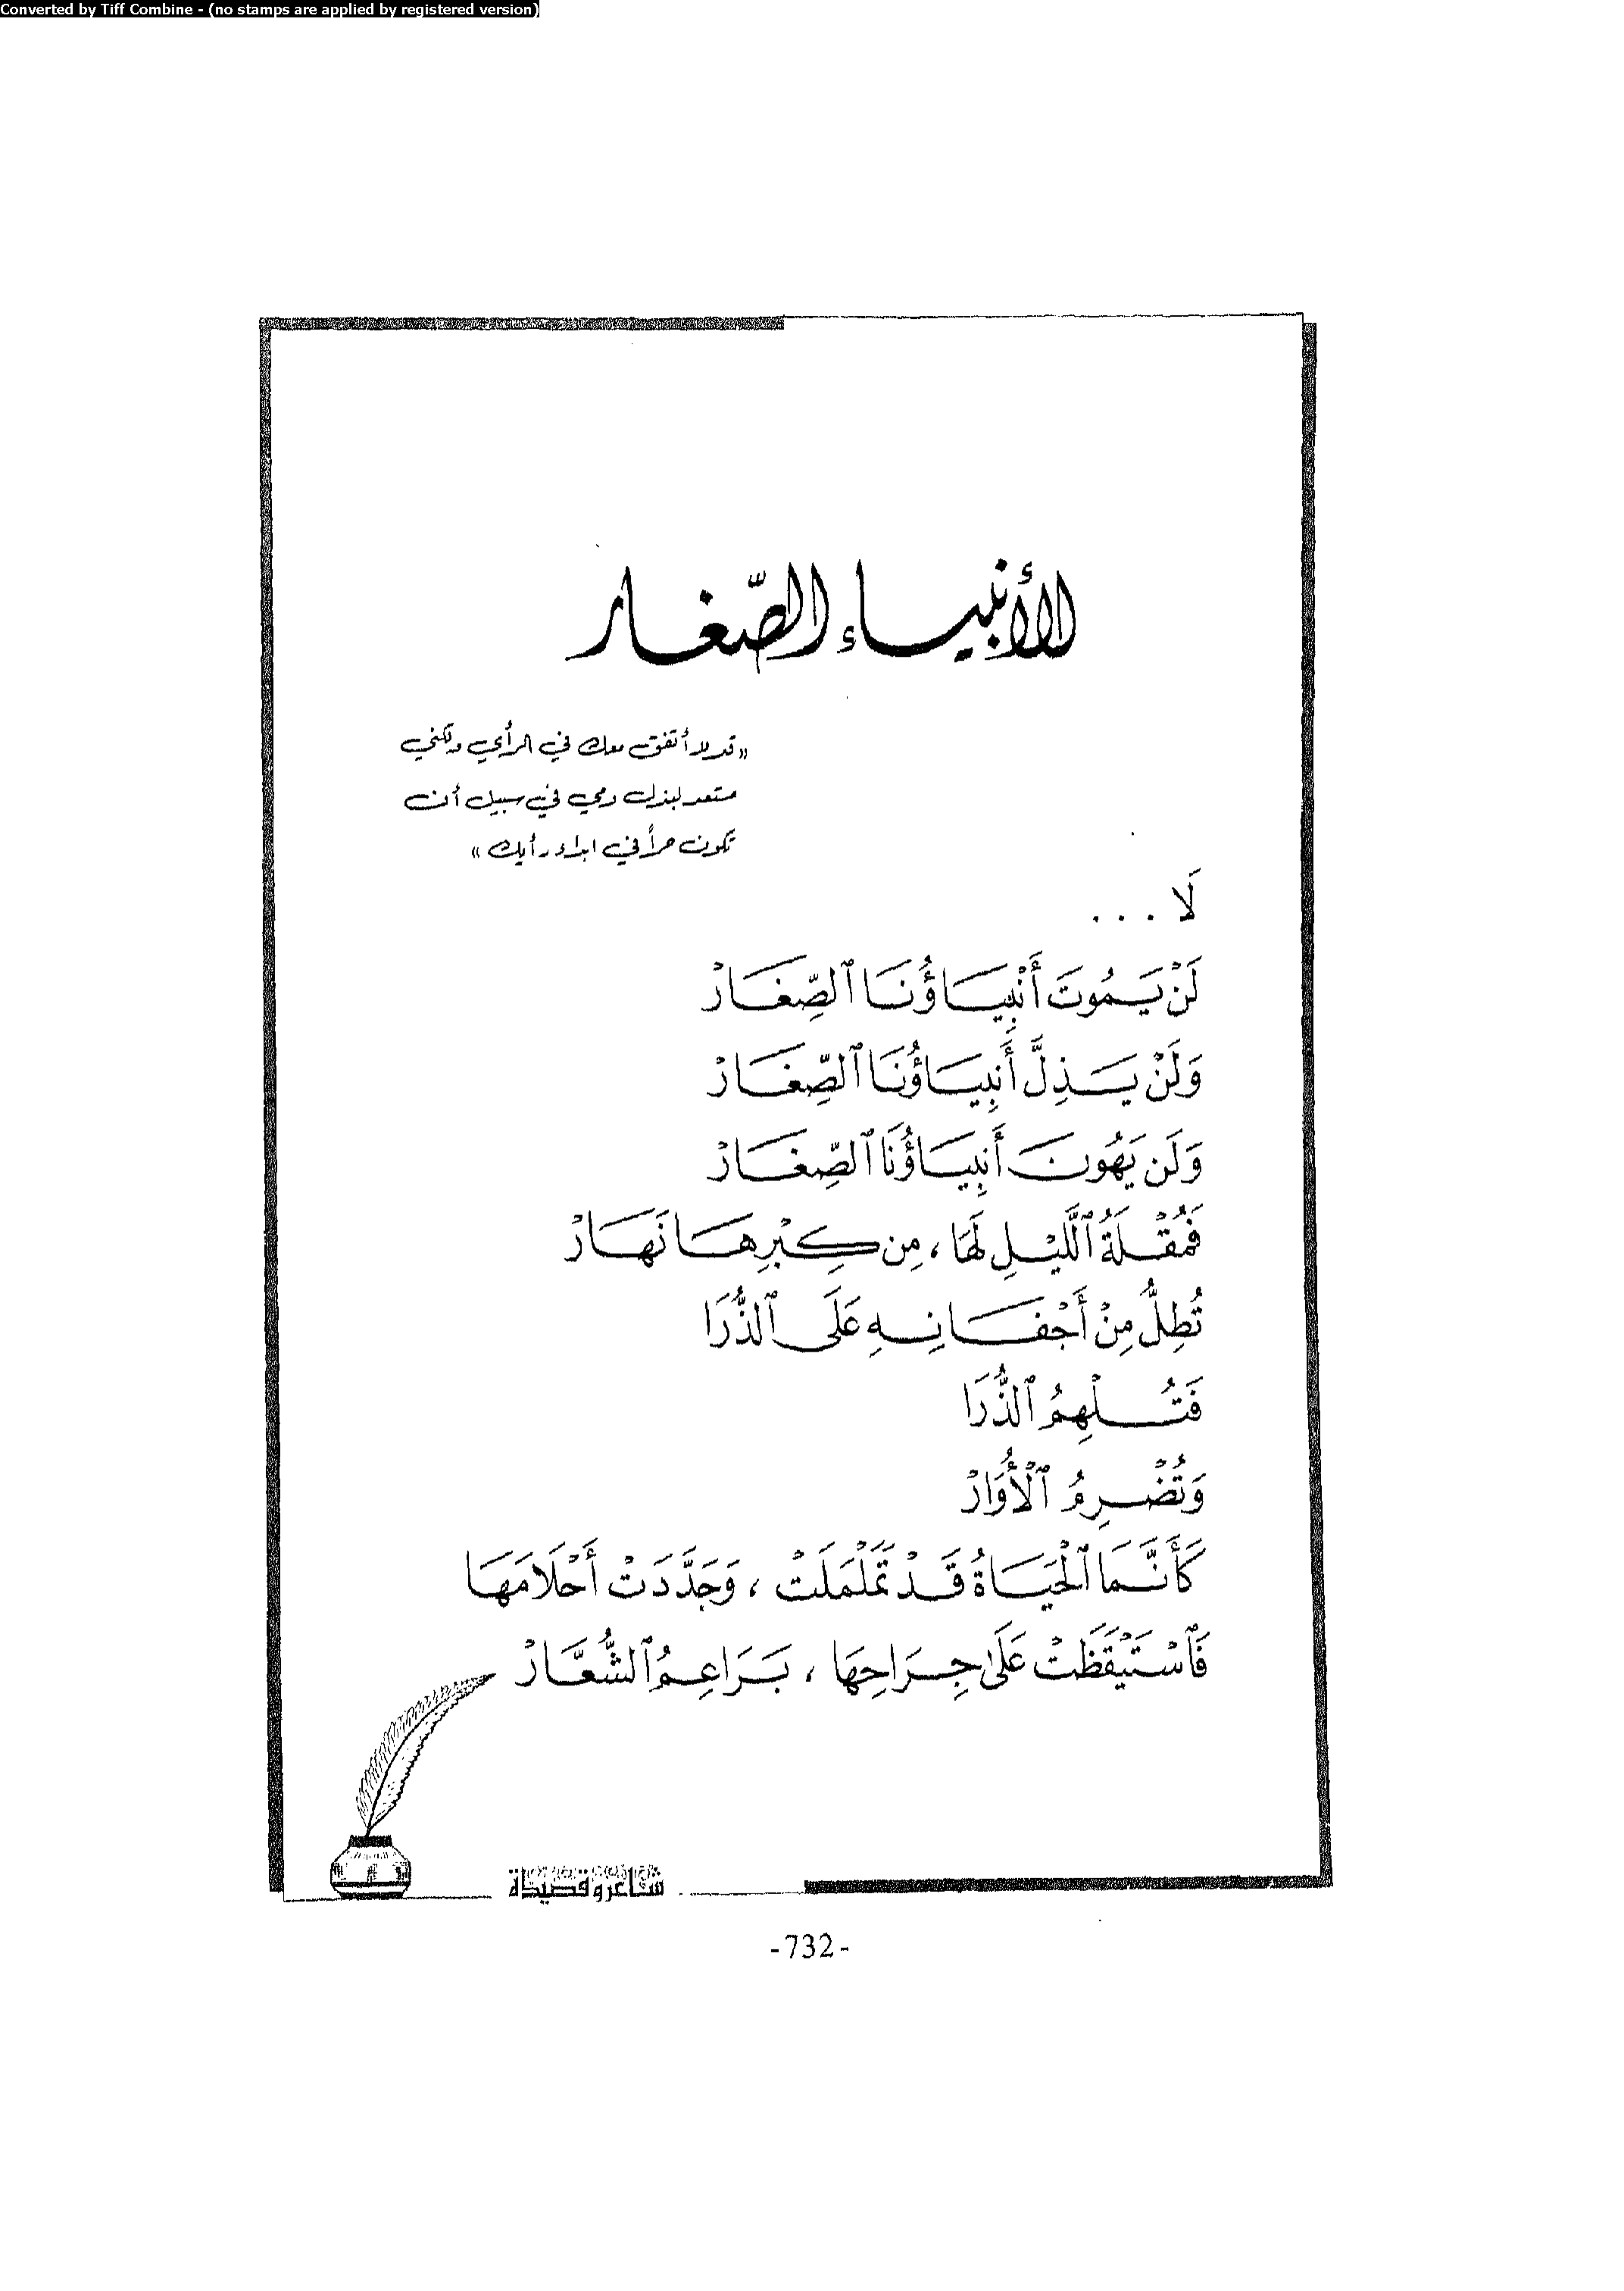 Converted by Tiff Combine - (no stamps are applied by registered version)
الأنبياء الصّغار
«قد لا أتفق معك في الرأي ولكني
مستعد لبذل دمي في سبيل أن
تكون حراً في ابداء رأيك»
لَا . . .
لَنْ يَمُوتَ أَنْبِيَاؤُنَا ٱلصِّغَارْ
وَلَنْ يَذِلَّ أَنبِيَاؤُنَا ٱلصِّغَارْ
وَلَن يَهُونَ أَنبِيَاؤُنَا ٱلصِّغَارْ
فَمُقْلَةُ ٱللَّيْلِ لَهَا ، مِن كِبْرِهَا نَهَارْ
تُطِلُّ مِنْ أَجْفَانِهِ عَلَى ٱلذُّرَا
فَتُلْهِمُ ٱلذُّرَا
وَتُضْرِمُ ٱلْأُوَارْ
كَأَنَّمَا ٱلْحَيَاةُ قَدْ تَمَلْمَلَتْ ، وَجَدَّدَتْ أَحْلَامَهَا
فَٱسْتَيْقَظَتْ عَلَىٰ جِرَاحِهَا ، بَرَاعِمُ ٱلشُّعَّارْ
شاعر وقصيدة
-732-